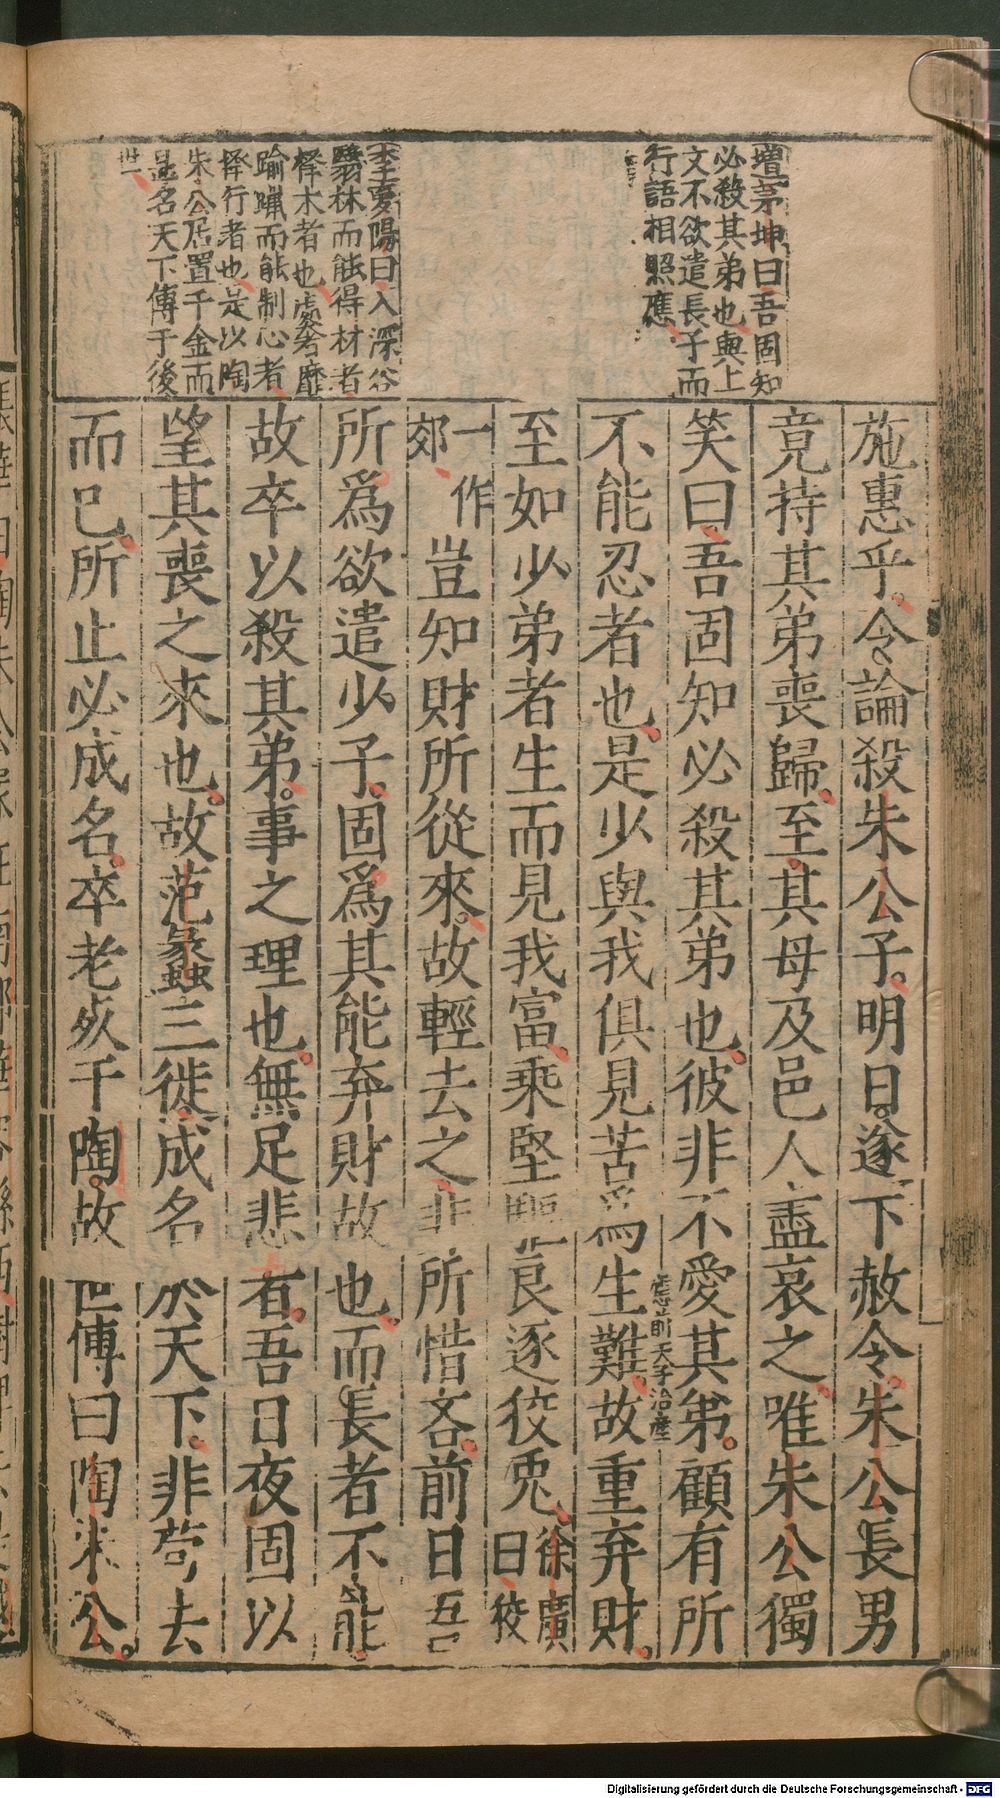 增茅坤曰吾固知
必殺其弟也與上
文不欲遣長子而
行語相照應
李夢陽曰入深谷
翳林而能得材者
擇木者也處奢靡
踰躐而能制心者
擇行者也是以陶
朱公居置千金而
显名天下傳于後
世
施惠乎令論殺朱公子明日遂下赦令朱公長男
竟持其弟喪歸至其母及邑人盡哀之唯朱公獨
笑曰吾固知必殺其弟也彼非不愛其弟顧有所
應前天子治產
不能忍者也是少與我俱見苦為生難故重弃財
至如少弟者生而見我富乘堅驅良逐狡兎徐廣曰狡
一作郊豈知財所從來故輕去之非所惜吝前日吾
所爲欲遣少子固爲其能弃財故也而長者不能
故卒以殺其弟事之理也無足悲者吾日夜固以
望其喪之來也故范蠡三徙成名於天下非苟去
而已所止必成名卒老死于陶故世傳曰陶朱公
Digitalisierung gefördert durch die Deutsche Forschungsgemeinschaft - DFG